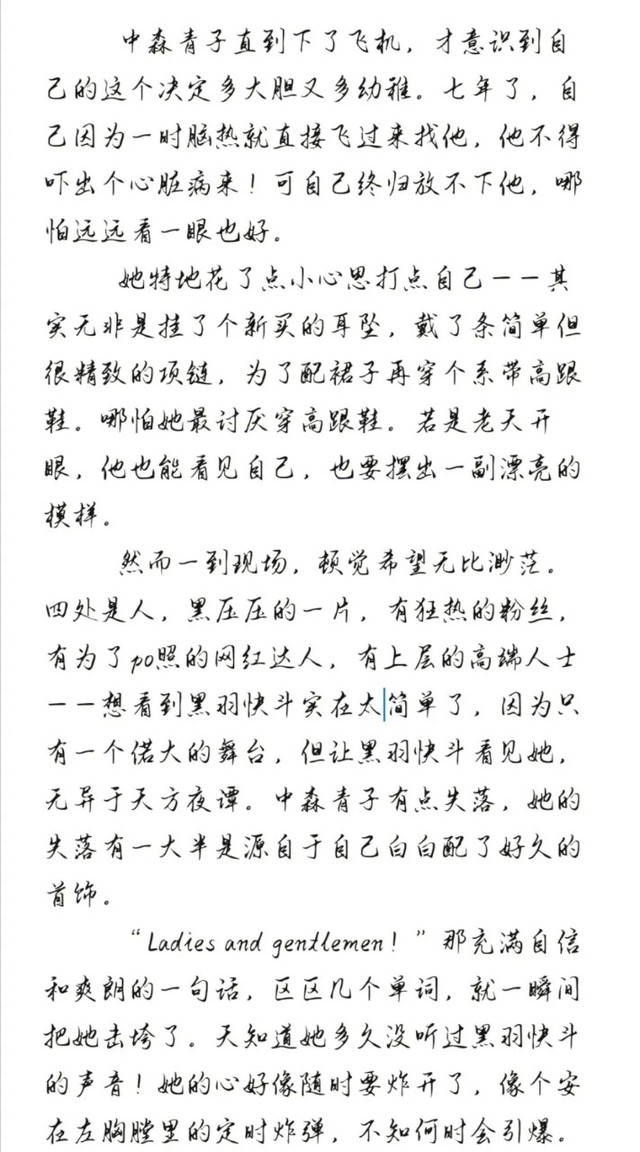 中森青子直到下了飞机，才意识到自
己的这个决定多大胆又多幼稚。七年了，自
己因为一时脑热就直接飞过来找他，他不得
吓出个心脏病来！可自己终归放不下他，哪
怕远远看一眼也好。
她特地花了点小心思打点自己——其
实无非是挂了个新买的耳坠，戴了条简单但
很精致的项链，为了配裙子再穿个系带高跟
鞋。哪怕她最讨厌穿高跟鞋。若是老天开
眼，他也能看见自己，也要摆出一副漂亮的
模样。
然而一到现场，顿觉希望无比渺茫。
四处是人，黑压压的一片，有狂热的粉丝，
有为了po照的网红达人，有上层的高端人士
——想看到黑羽快斗实在太简单了，因为只
有一个偌大的舞台，但让黑羽快斗看见她，
无异于天方夜谭。中森青子有点失落，她的
失落有一大半是源自于自己白白配了好久的
首饰。
“Ladies and gentlemen！”那充满自信
和爽朗的一句话，区区几个单词，就一瞬间
把她击垮了。天知道她多久没听过黑羽快斗
的声音！她的心好像随时要炸开了，像个安
在左胸膛里的定时炸弹，不知何时会引爆。